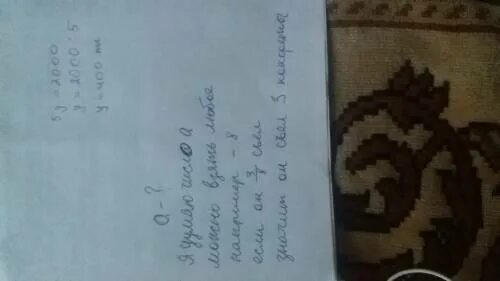 5y=2000
y=2000:5
y=400 тг
а - ?
Я думаю число а
можно взять любое
например - 8
если он 3/8 съел
значит он съел 3 конфеты